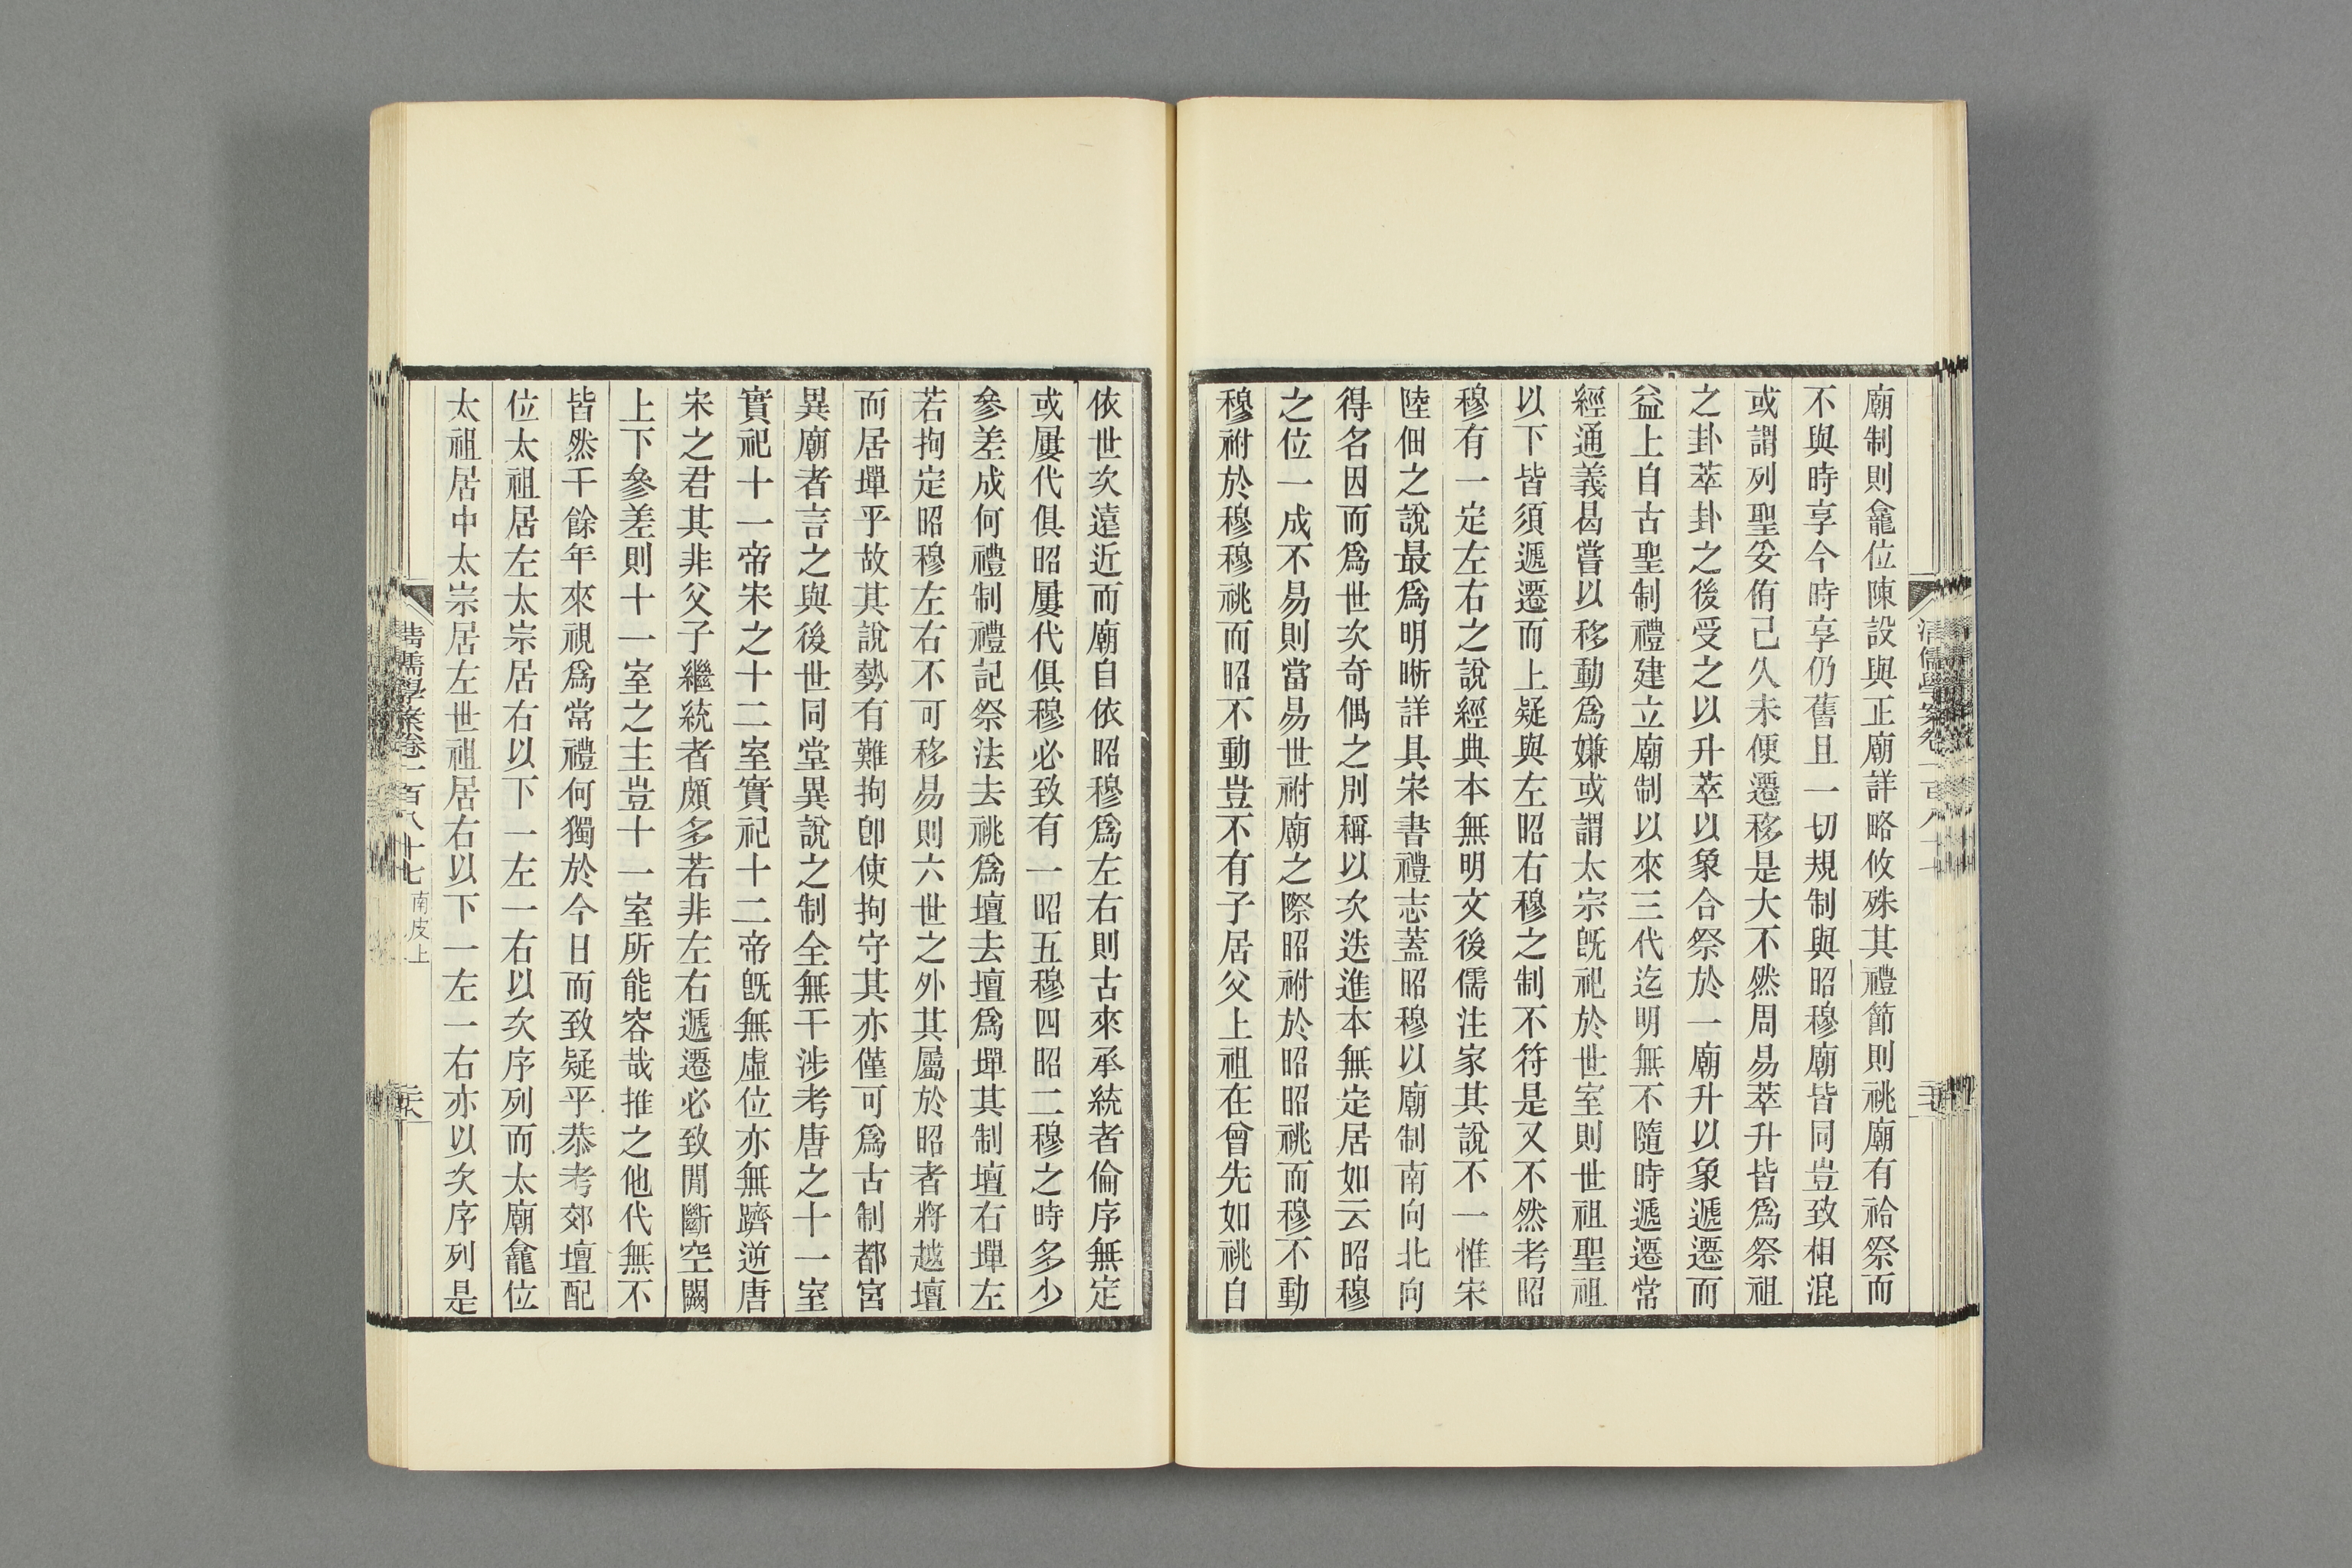 廟制則龕位陳設與正廟詳略攸殊其禮節則祧廟有祫祭而
不與時享今時享仍舊且一切規制與昭穆廟皆同豈致相混
或謂列聖妥侑已久未便遷移是大不然周易萃升皆爲祭祖
之卦萃卦之後受之以升萃以象合祭於一廟升以象遞遷而
益上自古聖制禮建立廟制以來三代迄明無不隨時遞遷常
經通義曷嘗以移動爲嫌或謂太宗旣祀於世室則世祖聖祖
以下皆須遞遷而上疑與左昭右穆之制不符是又不然考昭
穆有一定左右之說經典本無明文後儒注家其說不一惟宋
陸佃之說最爲明晰詳具宋書禮志蓋昭穆以廟制南向北向
得名因而爲世次奇偶之別稱以次迭進本無定居如云昭穆
之位一成不易則當易世祔廟之際昭祔於昭昭祧而穆不動
穆祔於穆穆祧而昭不動豈不有子居父上祖在曾先如祧自
依世次遠近而廟自依昭穆爲左右則古來承統者倫序無定
或屢代俱昭屢代俱穆必致有一昭五穆四昭二穆之時多少
參差成何禮制禮記祭法去祧爲壇去壇爲墠其制壇右墠左
若拘定昭穆左右不可移易則六世之外其屬於昭者將越壇
而居墠乎故其說勢有難拘卽使拘守其亦僅可爲古制都宮
異廟者言之與後世同堂異說之制全無干涉考唐之十一室
實祀十一帝宋之十二室實祀十二帝旣無虛位亦無躋逆唐
宋之君其非父子繼統者頗多若非左右遞遷必致閒斷空闕
上下參差則十一室之主豈十一室所能容哉推之他代無不
皆然千餘年來視爲常禮何獨於今日而致疑乎恭考郊壇配
位太祖居左太宗居右以下一左一右以次序列而太廟龕位
太祖居中太宗居左世祖居右以下一左一右亦以次序列是
清儒學案卷一百八十七 南皮上